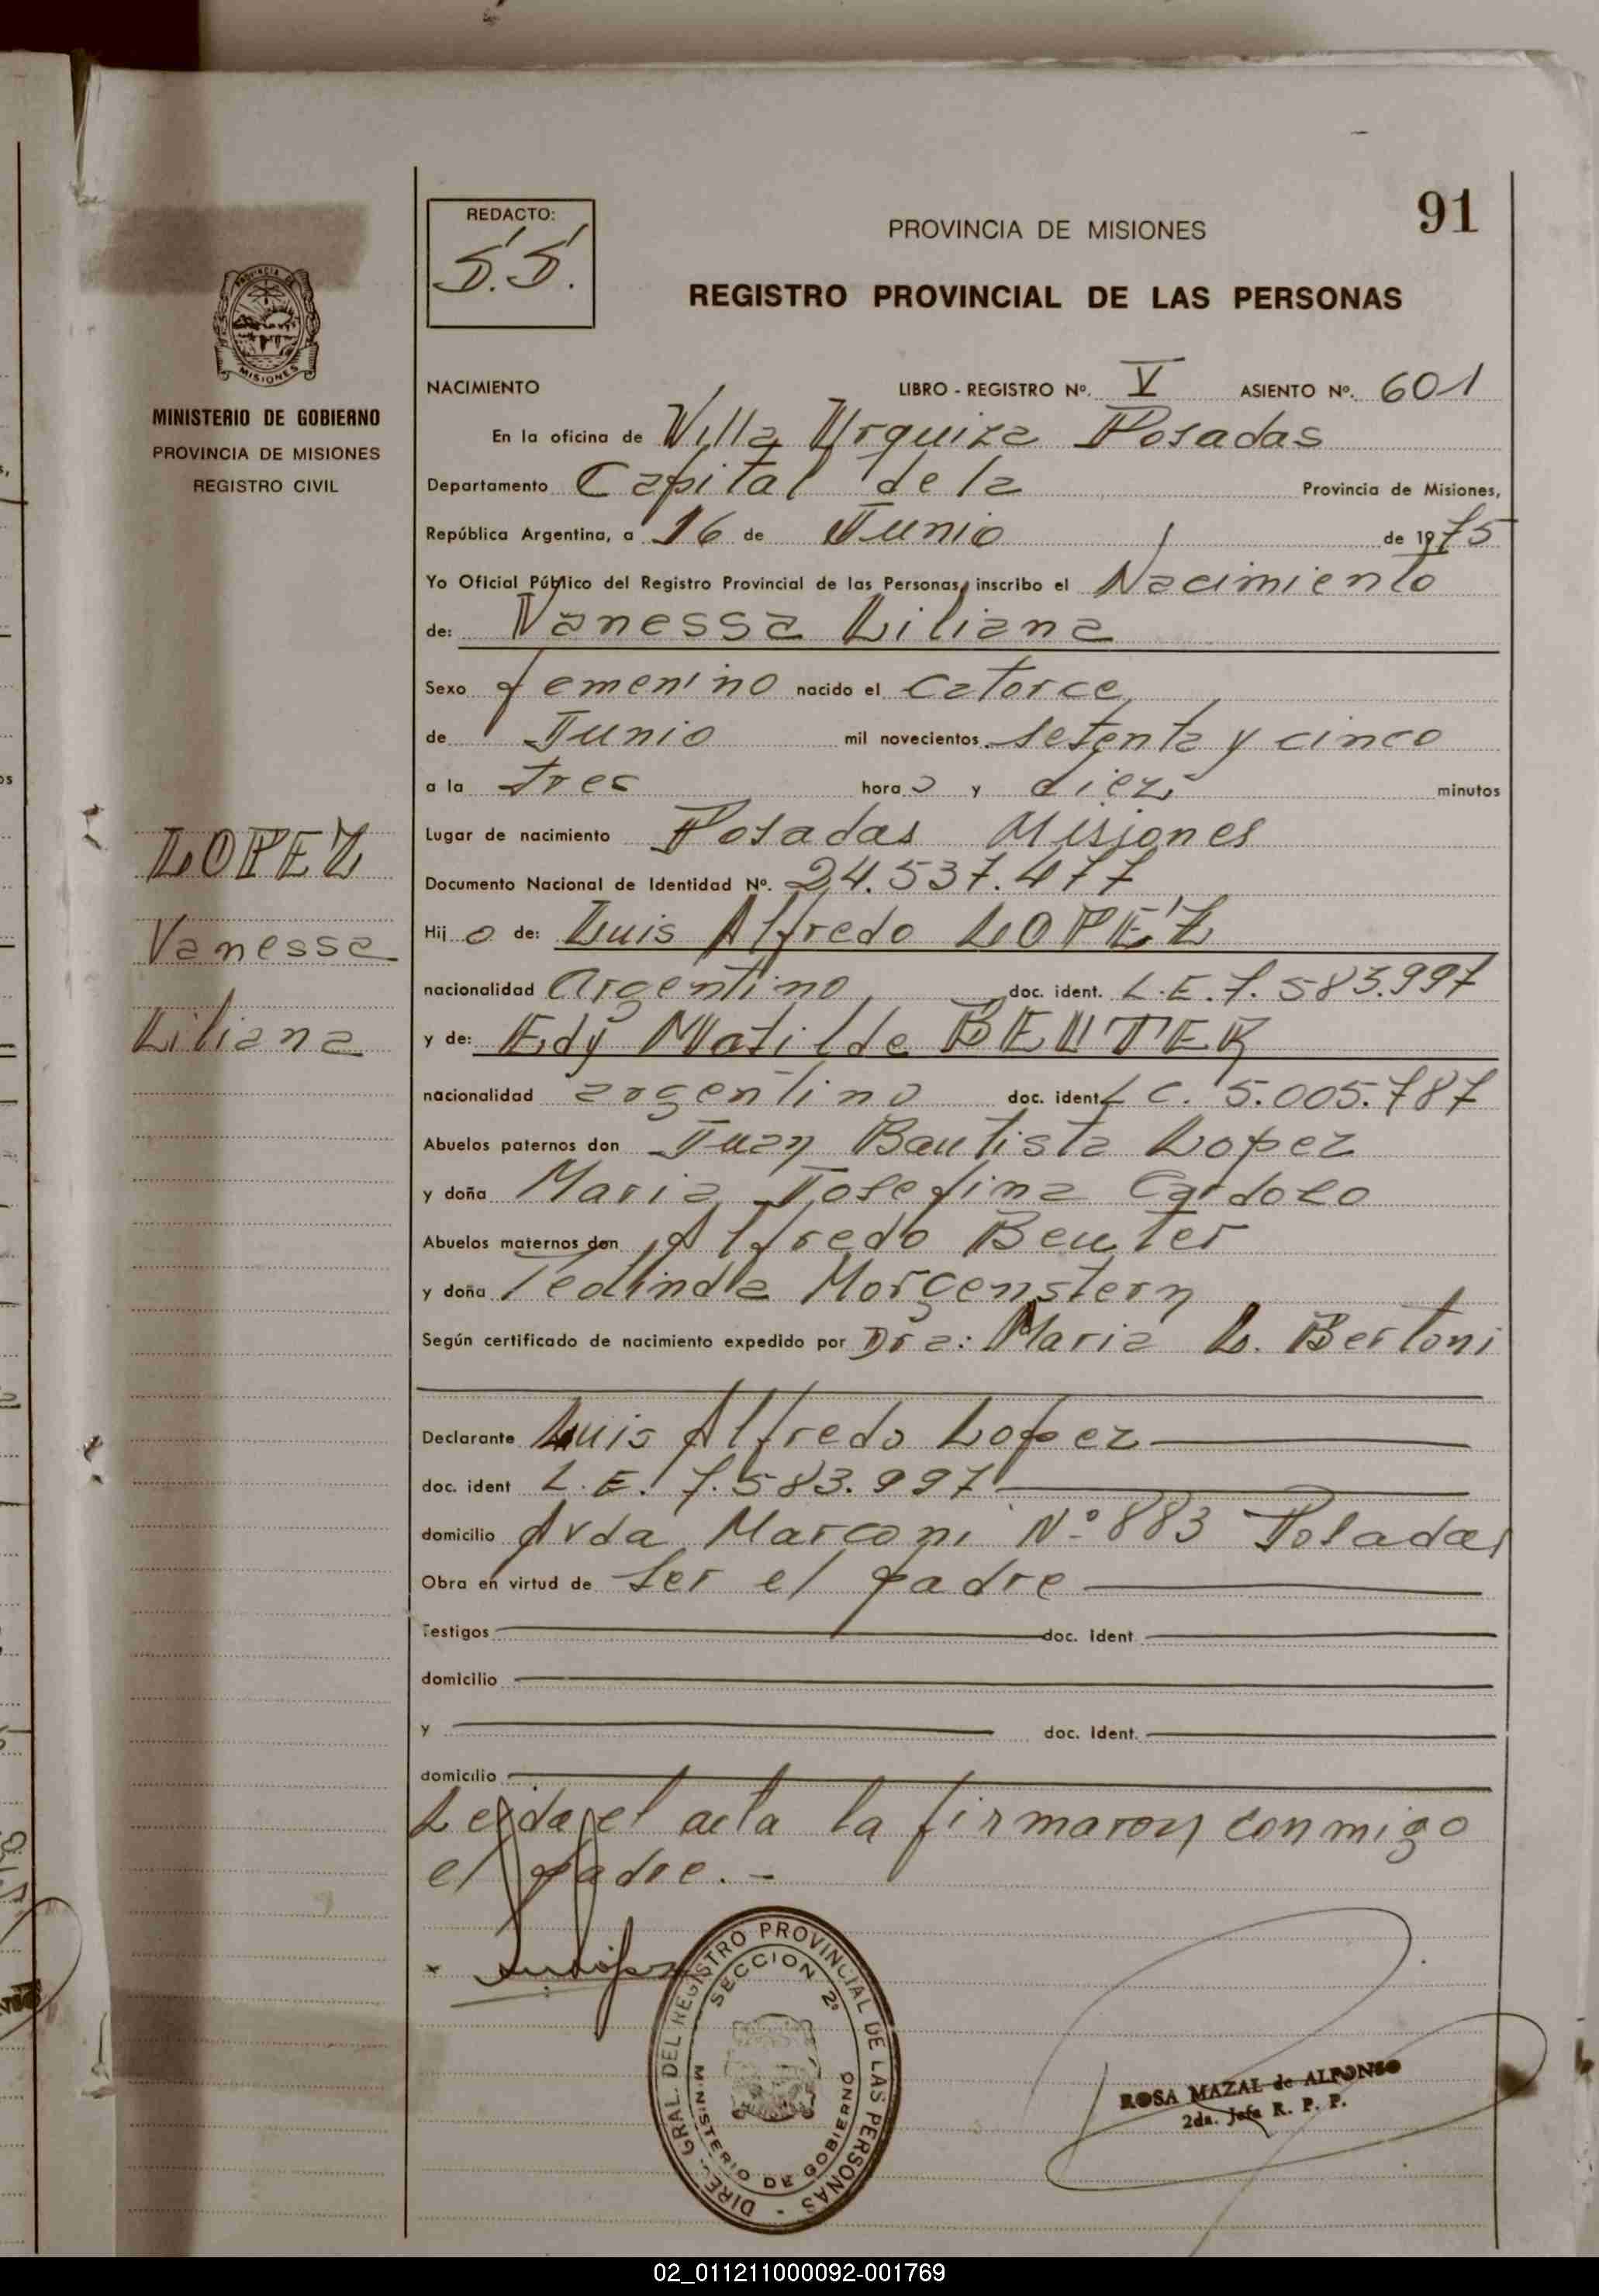 91
REDACTO:
S.S.
PROVINCIA DE MISIONES
REGISTRO PROVINCIAL DE LAS PERSONAS
PROVINCIA DE
MISIONES
MINISTERIO DE GOBIERNO
PROVINCIA DE MISIONES
REGISTRO CIVIL
NACIMIENTO LIBRO - REGISTRO Nº. V ASIENTO Nº. 601
En la oficina de Villa Urquiza Posadas
Departamento Capital de la Provincia de Misiones,
República Argentina, a 16 de Junio de 1975
Yo Oficial Público del Registro Provincial de las Personas, inscribo el Nacimiento
de: Vanessa Liliana
Sexo femenino nacido el catorce
de Junio mil novecientos setenta y cinco
a la tres hora s y diez minutos
Lugar de nacimiento Posadas Misiones
LOPEZ
Documento Nacional de Identidad Nº. 24.537.477
Vanessa
Hij o de: Luis Alfredo LOPEZ
nacionalidad Argentino doc. ident. L.E. 7.583.997
Liliana
y de: Edy Matilde BEUTER
nacionalidad argentino doc. ident. L C. 5.005.787
Abuelos paternos don Juan Bautista Lopez
y doña Maria Josefina Cardozo
Abuelos maternos don Alfredo Beuter
y doña Teolinda Morgenstern
Según certificado de nacimiento expedido por Dra: Maria L. Bertoni
Declarante Luis Alfredo Lopez
doc. ident L.E. 7.583.997
domicilio Avda Marconi Nº 883 Posadas
Obra en virtud de ser el padre
Testigos doc. Ident.
domicilio
y doc. Ident.
domicilio
Leida el acta la firmaron conmigo
el padre. -
DIREC. GRAL. DEL REGISTRO PROVINCIAL DE LAS PERSONAS -
SECCION 2º
MINISTERIO DE GOBIERNO
ROSA MAZAL de ALFONSO
2da. Jefa R. P. P.
02_011211000092-001769